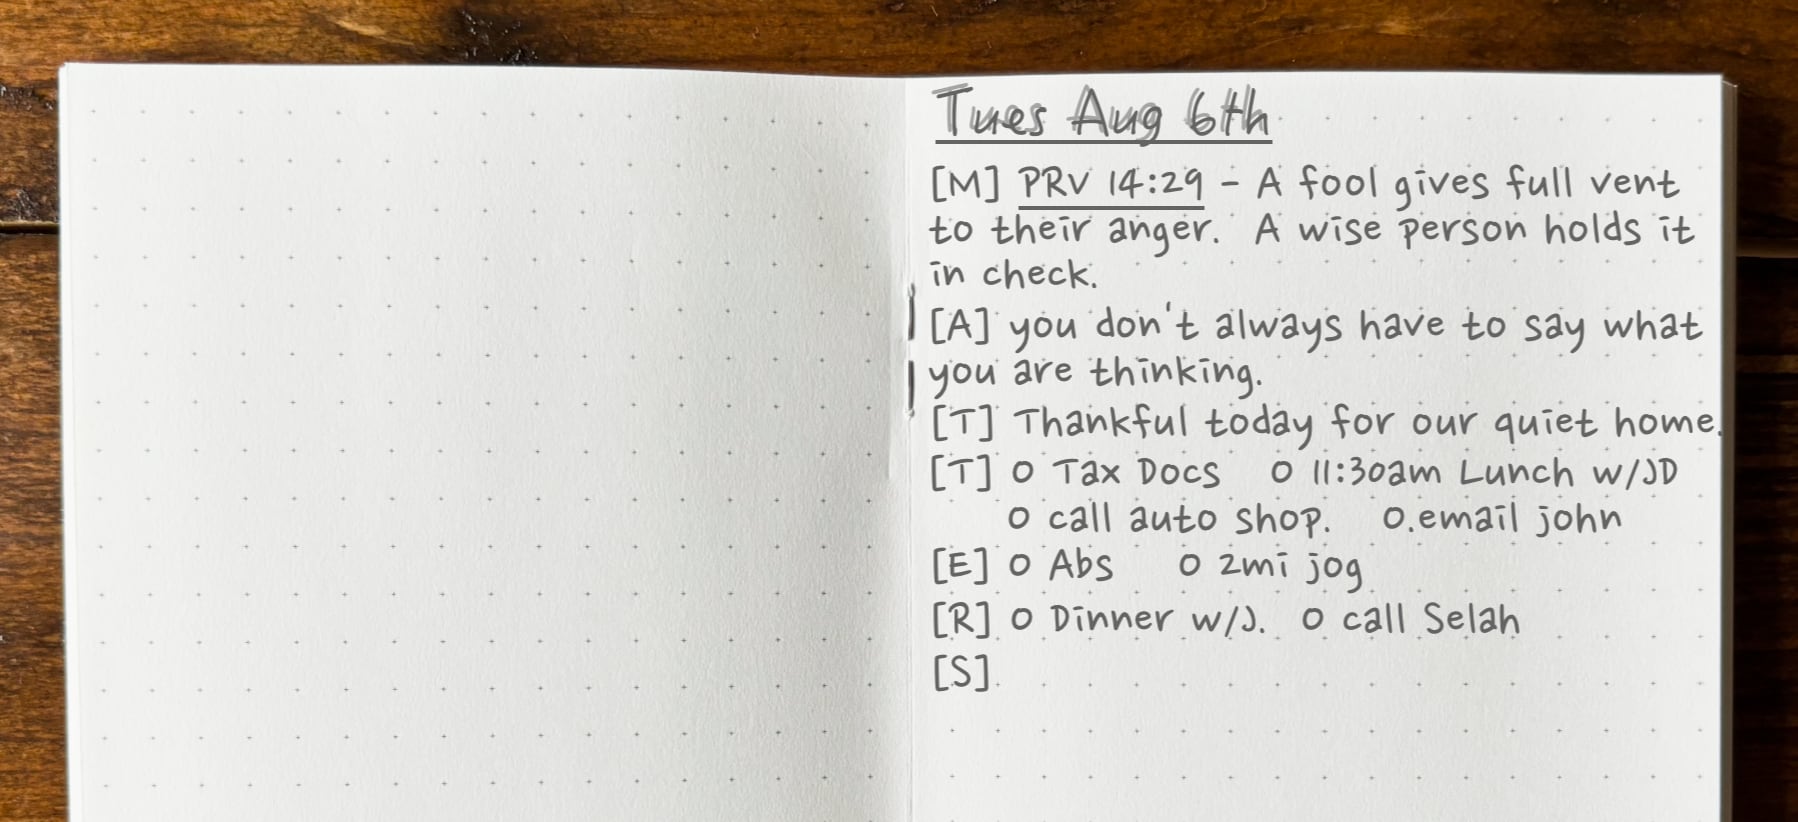 Tues Aug 6th
[M] PRV 14:29 - A fool gives full vent
to their anger. A wise person holds it
in check.
[A] you don't always have to say what
you are thinking.
[T] Thankful today for our quiet home.
[T] O Tax Docs O 11:30am Lunch w/JD
O call auto shop. O.email john
[E] O Abs O 2mi jog
[R] O Dinner w/J. O call Selah
[S]